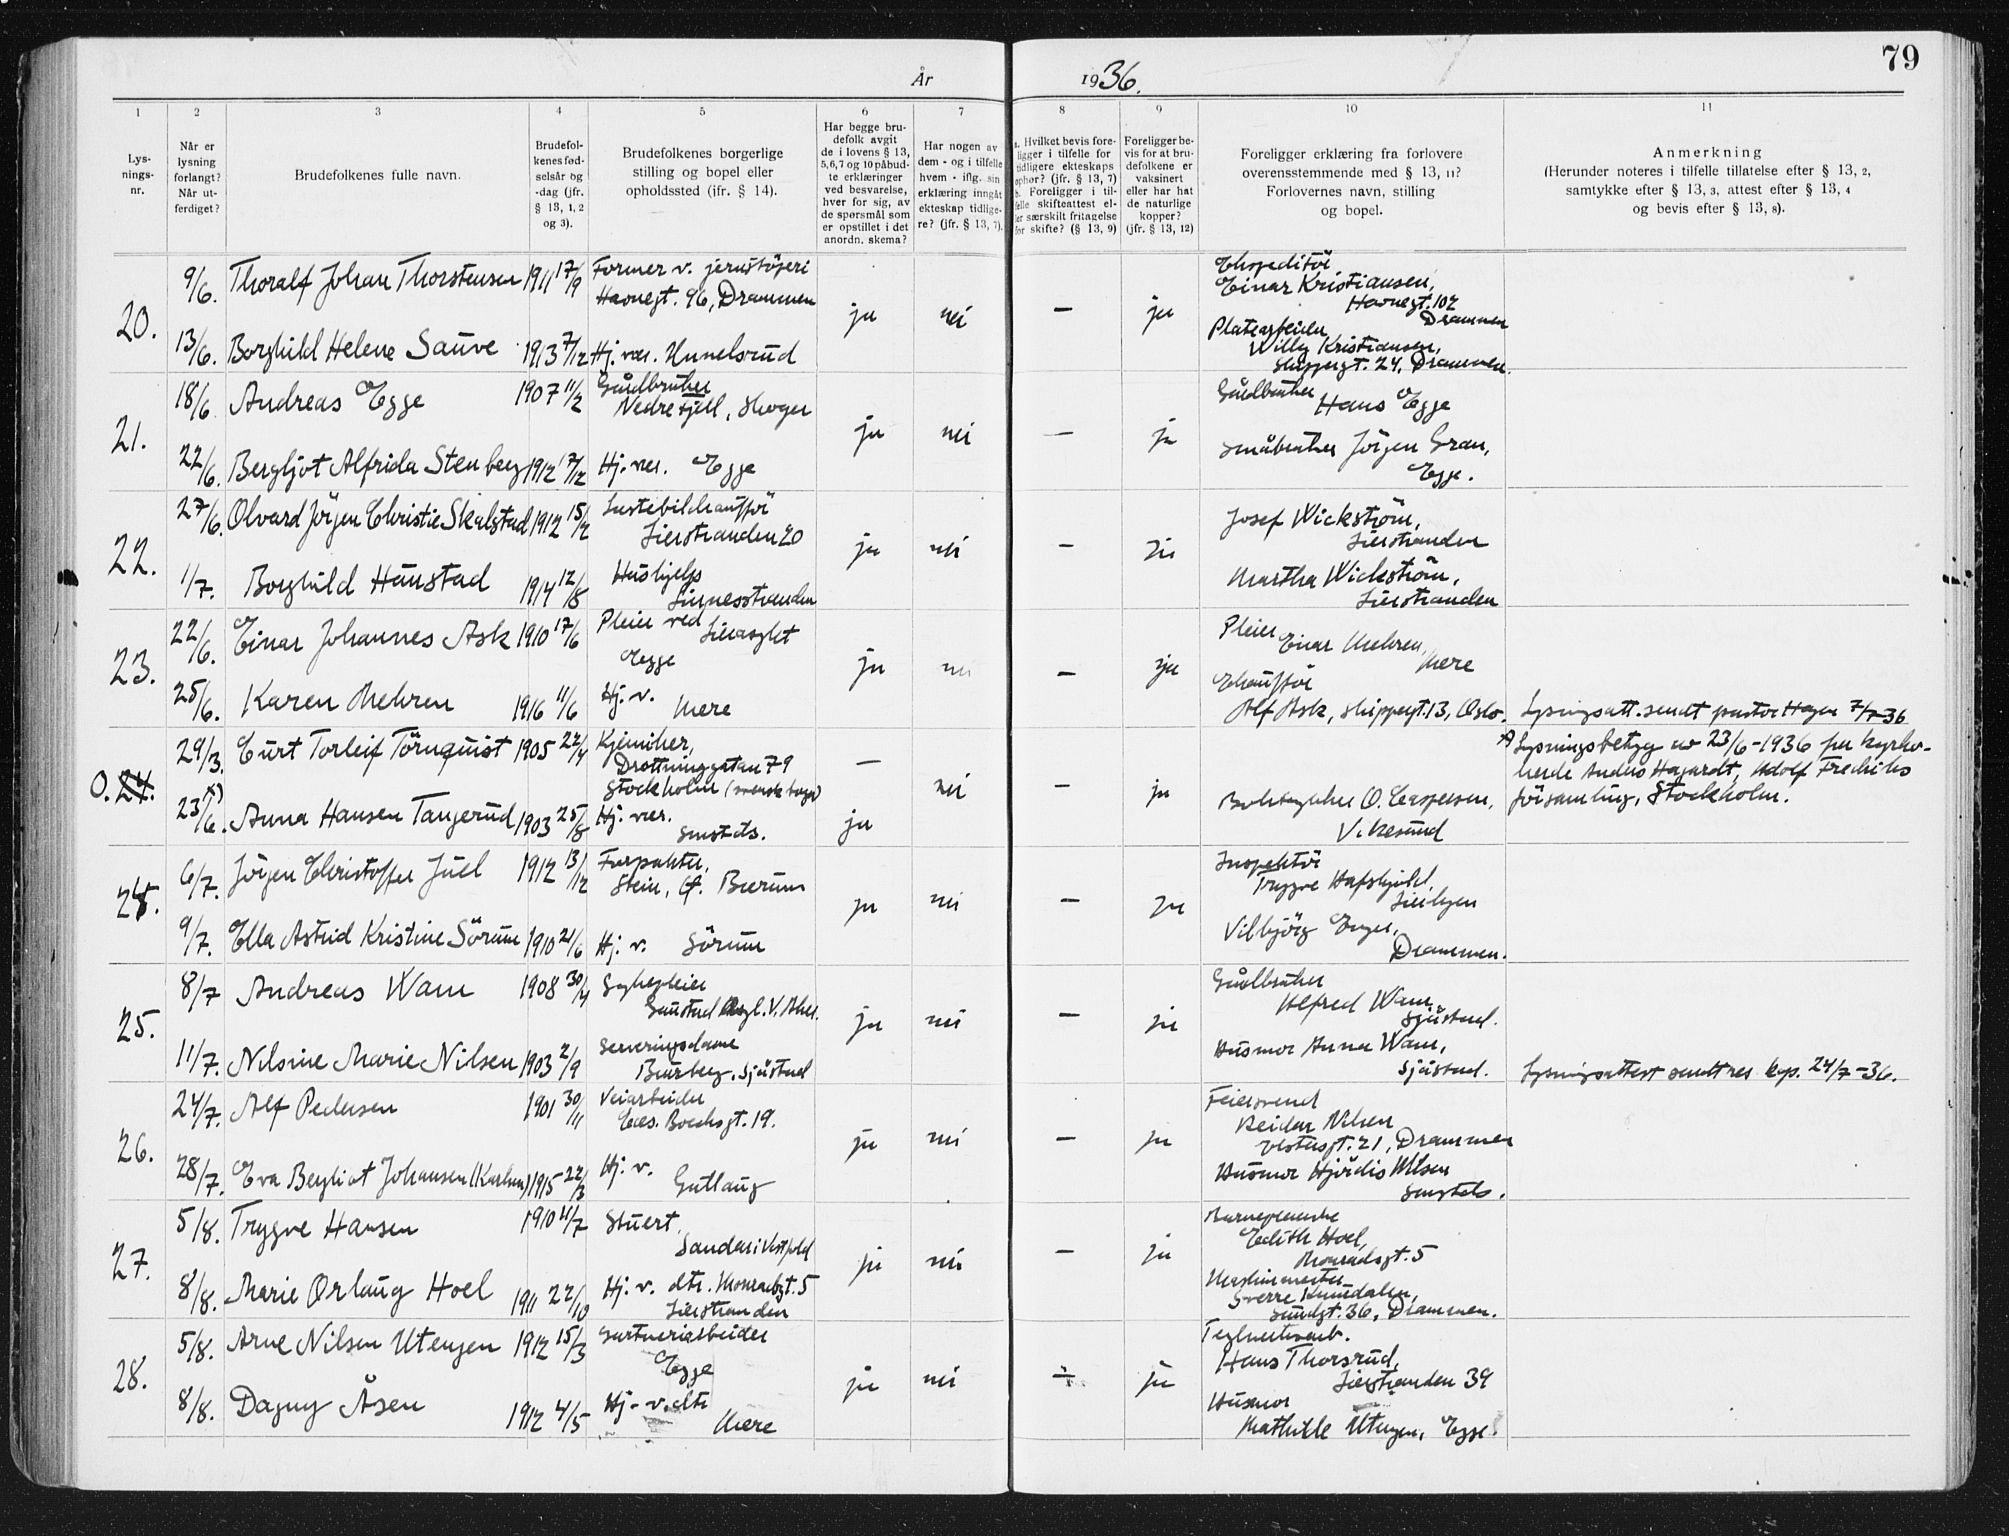 79
År 1936.
1 2 3 4 5 6 7 8 9 10 11
Lys-
nings-
nr.
Når er
lysning
forlangt?
Når ut-
ferdiget?
Brudefolkenes fulle navn.
Brudefol-
kenes fød-
selsår og
-dag (jfr.
§ 13, 1, 2
og 3).
Brudefolkenes borgerlige
stilling og bopel eller
opholdssted (jfr. § 14).
Har begge bru-
defolk avgit
de i lovens § 13,
5, 6, 7 og 10 påbud-
te erklæringer
ved besvarelse,
hver for sig, av
de spørsmål som
er opstillet i det
anordn. skema?
Har nogen av
dem - og i tilfelle
hvem - iflg. sin
erklæring inngått
ekteskap tidlige-
re? (jfr. § 13, 7).
a. Hvilket bevis fore-
ligger i tilfelle for
tidligere ekteskaps
ophør? (jfr. § 13, 7)
b. Foreligger i til-
felle skifteattest el-
ler særskilt fritagelse
for skifte? (§ 13, 9)
Foreligger be-
vis for at bru-
defolkene er
vaksinert
eller har hat
de naturlige
kopper?
(jfr. § 13, 12)
Foreligger erklæring fra forlovere
overensstemmende med § 13, 11?
Forlovernes navn, stilling
og bopel.
Anmerkning
(Herunder noteres i tilfelle tillatelse efter § 13, 2,
samtykke efter § 13, 3, attest efter § 13, 4
og bevis efter § 13, 8).
20.
9/6. Thoralf Johan Thorstensen 1911 17/9 Former v. jernstøperi
Havnegt. 96, Drammen
13/6. Borghild Helene Sauve 1913 7/12 Hj. vær. Unnelsrud
ja nei — ja
Ekspeditör
Einar Kristiansen,
Havnegt. 102
Drammen
Platearbeider
Willy Kristiansen,
Skippergt. 24, Drammen.
21.
18/6 Andreas Egge 1907 11/2 Gårdbruker
Nedre Fjell, Skoger
22/6. Bergljot Alfrida Stenberg 1912 17/12 Hj. vær. Egge
ja nei — ja
Gårdbruker
Hans Egge
Småbruker Jörgen Gran,
Egge.
22.
27/6. Olvard Jörgen Christie Skalstad 1912 15/2 Lastebilchaufför
Lierstranden 20
1/7. Borghild Haustad 1914 12/8 Hushjelp
Linnesstranden
ja nei — ja
Josef Wickström,
Lierstranden
Martha Wickström,
Lierstranden
23.
22/6. Einar Johannes Ask 1910 17/6 Pleier ved
Lierasylet
Egge
25/6. Karen Mehren 1916 11/6 Hj. v.
Mere
ja nei — ja
Pleier
Einar Mehren,
Mere
Chaufför
Alf Ask, Skippergt. 13, Oslo.
Lysningsatt. sendt pastor Hagen 7/7-36
0. 24.
29/3. Curt Torleif Törnquist 1905 22/4 Kjemiker,
Drottninggatan 79
Stockholm (svensk borger)
23/6. x) Anna Hansen Tangerud 1903 25/8 Hj. vær.
Smstds.
— ja nei — ja
O. Caspersen,
Vikesund
x) Lysningsbetyg av 23/6-1936 fra kyrko-
herde Anders Hagardt, Adolf Fredriks
församling, Stockholm.
24.
6/7. Jörgen Christoffer Juel 1912 13/12 Forpakter,
Stein, Bærum
9/7. Ella Astrid Kristine Sörum 1910 21/6 Hj. v. Sörum
ja nei — ja
Inspektör
Trygve Hafskjold,
Lierbyen
Vilbjörg Enger,
Drammen.
25.
8/7 Andreas Wam 1908 30/4 Sykepleier
Gaustad Asyl. V. Aker.
11/7. Nilsine Marie Nilsen 1903 2/9 Serveringsdame
Burberg, Sjåstad
ja nei — ja
Gårdbruker
Alfred Wam,
Sjåstad.
Husmor Anna Wam,
Sjåstad.
Lysningsattest sendt res. kap. 24/7-36.
26.
24/7. Alf Pedersen 1901 30/11 Veiarbeider
Boecksgt. 19.
28/7. Eva Bergliot Johansen (Karlsen) 1915 22/3 Hj. v.
Gutlaug
ja nei — ja
Feiersvend
Reidar Nilsen
Vestergt. 21, Drammen
Husmor Hjördis Nilsen
Smstds.
27.
5/8. Trygve Hansen 1910 4/7 Stuert,
Sandar i Vestfold
8/8. Marie Orlaug Hoel 1911 22/10 Hj. v. dtr. Monradsgt. 5
Lierstranden
ja nei — ja
Barnepleierske
Edith Hoel,
Monradsgt. 5
Maskinmester
Sverre Kunndalen,
Sundgt. 36, Drammen.
28.
5/8. Arne Nilsen Utengen 1912 15/3 Gartneriarbeider
Egge
8/8. Dagny Åsen 1912 4/5 Hj. v. dtr
Mere
ja nei — ja
Teglverksarb.
Hans Thorsrud,
Lierstranden 39
Husmor
Mathilde Utengen, Egge.